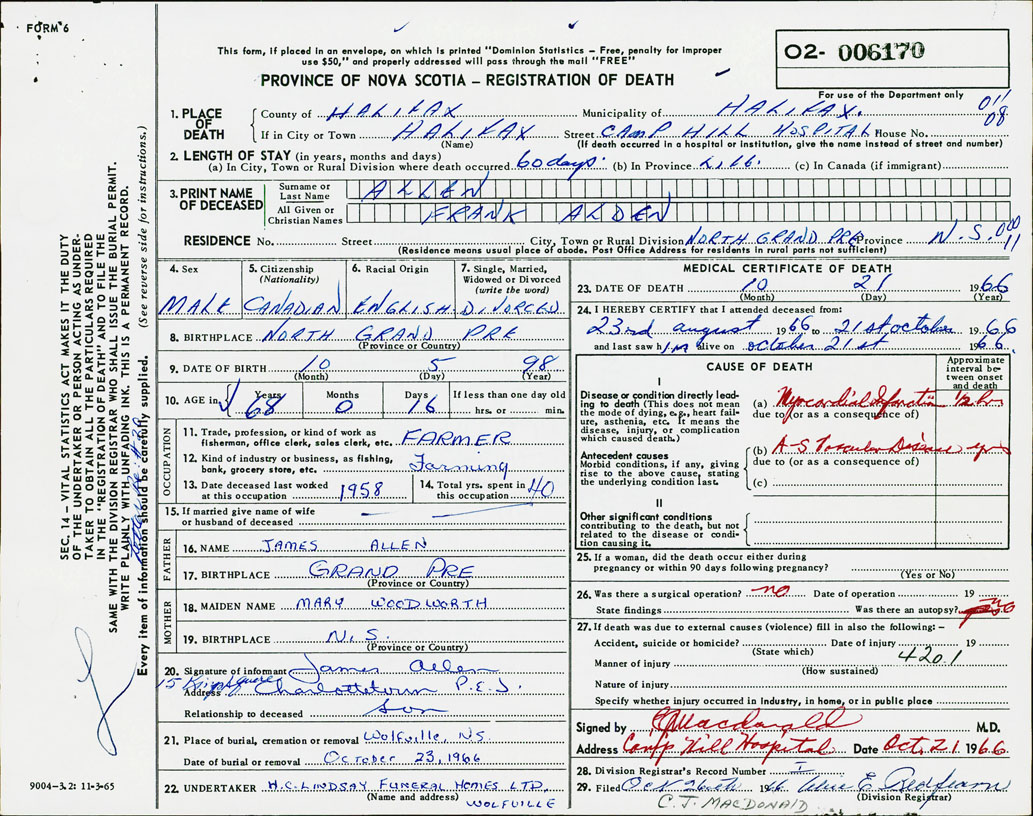 FORM 6
This form, if placed in an envelope, on which is printed "Dominion Statistics – Free, penalty for improper
use $50," and properly addressed will pass through the mail "FREE"
O2- 006170
PROVINCE OF NOVA SCOTIA – REGISTRATION OF DEATH
For use of the Department only
011
08
1. PLACE OF DEATH
County of HALIFAX Municipality of HALIFAX.
If in City or Town HALIFAX Street CAMP HILL HOSPITAL House No.
(Name) (If death occurred in a hospital or institution, give the name instead of street and number)
2. LENGTH OF STAY (in years, months and days)
(a) In City, Town or Rural Division where death occurred 60 days. (b) In Province Life. (c) In Canada (if immigrant)
3. PRINT NAME OF DECEASED
Surname or Last Name ALLEN
All Given or Christian Names FRANK ALDEN
RESIDENCE No. Street City, Town or Rural Division NORTH GRAND PRE Province N.S.
(Residence means usual place of abode. Post Office Address for residents in rural parts not sufficient)
11
4. Sex
MALE
5. Citizenship
(Nationality)
CANADIAN
6. Racial Origin
ENGLISH
7. Single, Married,
Widowed or Divorced
(write the word)
DIVORCED
8. BIRTHPLACE NORTH GRAND PRE
(Province or Country)
9. DATE OF BIRTH 10 5 98
(Month) (Day) (Year)
10. AGE in
Years Months Days If less than one day old
68 0 16 hrs. or min.
OCCUPATION
11. Trade, profession, or kind of work as
fisherman, office clerk, sales clerk, etc. FARMER
12. Kind of industry or business, as fishing,
bank, grocery store, etc. Farming
13. Date deceased last worked
at this occupation 1958
14. Total yrs. spent in
this occupation 40
15. If married give name of wife
or husband of deceased
FATHER
16. NAME JAMES ALLEN
17. BIRTHPLACE GRAND PRE
(Province or Country)
MOTHER
18. MAIDEN NAME MARY WOODWORTH
19. BIRTHPLACE N.S.
(Province or Country)
20. Signature of informant James Allen
15
Address Charlottetown P.E.I.
Relationship to deceased Son
21. Place of burial, cremation or removal Wolfville, NS
Date of burial or removal October 23, 1966
22. UNDERTAKER H.C. LINDSAY FUNERAL HOMES LTD,
(Name and address) WOLFVILLE
MEDICAL CERTIFICATE OF DEATH
23. DATE OF DEATH 10 21 1966
(Month) (Day) (Year)
24. I HEREBY CERTIFY that I attended deceased from:
23rd august 1966 to 21st october 1966
and last saw him alive on october 21st 1966.
CAUSE OF DEATH
Approximate
interval be-
tween onset
and death
I
Disease or condition directly lead-
ing to death (This does not mean
the mode of dying, e.g., heart fail-
ure, asthenia, etc. It means the
disease, injury, or complication
which caused death.)
(a) Myocardial Infarction ½ hr
due to (or as a consequence of)
Antecedent causes
Morbid conditions, if any, giving
rise to the above cause, stating
the underlying condition last.
(b) A-S Vascular Disease yrs
due to (or as a consequence of)
(c)
II
Other significant conditions
contributing to the death, but not
related to the disease or condi-
tion causing it.
25. If a woman, did the death occur either during
pregnancy or within 90 days following pregnancy?
(Yes or No)
26. Was there a surgical operation? no Date of operation 19
State findings Was there an autopsy? no
27. If death was due to external causes (violence) fill in also the following: –
Accident, suicide or homicide? Date of injury 19
(State which)
420.1
Manner of injury
(How sustained)
Nature of injury
Specify whether injury occurred in Industry, in home, or in public place
Signed by Macdonald M.D.
Address Camp Hill Hospital Date Oct, 21 1966
28. Division Registrar's Record Number
29. Filed 1966
(Division Registrar)
C. J. MACDONALD
SEC. 14 – VITAL STATISTICS ACT MAKES IT THE DUTY
OF THE UNDERTAKER OR PERSON ACTING AS UNDER-
TAKER TO OBTAIN ALL THE PARTICULARS REQUIRED
IN THE "REGISTRATION OF DEATH" AND TO FILE THE
SAME WITH THE DIVISION REGISTRAR WHO SHALL ISSUE THE BURIAL PERMIT.
WRITE PLAINLY WITH UNFADING INK. THIS IS A PERMANENT RECORD.
Every item of information should be carefully supplied. (See reverse side for instructions.)
9004-3.2: 11-3-65